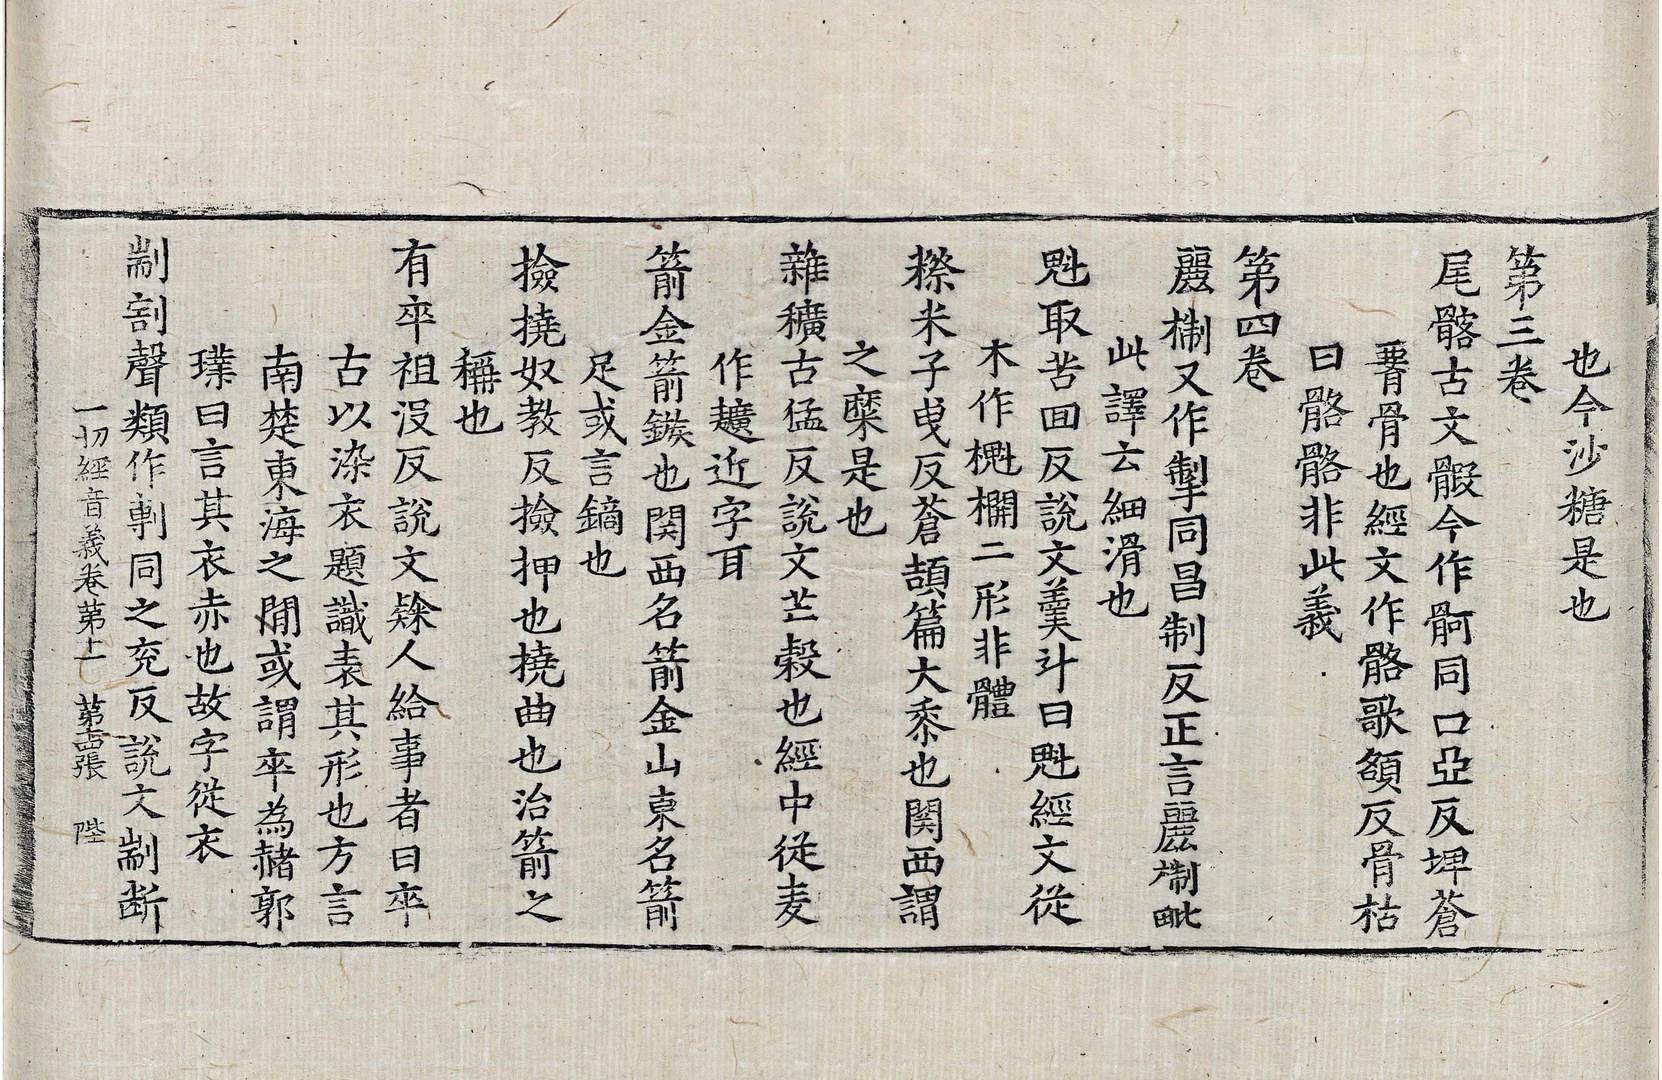 也今沙糖是也
第三卷
尾䯊古文髂今作䯊同口亞反埤蒼
䯒骨也經文作骼歌頟反骨枯
曰骼骼非此義
第四卷
麗㭯又作掣同昌制反正言麗㭯毗
此譯云細滑也
魁取苦回反說文羹斗曰魁經文從
木作櫆欄二形非體
穄米子曳反蒼頡篇大黍也関西謂
之穈是也
雜穬古猛反說文芒穀也經中從麦
作䵃近字耳
箭金箭鏃也関西名箭金山東名箭
足或言鏑也
撿撓奴教反撿押也撓曲也治箭之
稱也
有卒祖沒反說文隸人給事者曰卒
古以染衣題識表其形也方言
南楚東海之閒或謂卒為赭郭
璞曰言其衣赤也故字從衣
剬割聲類作剸同之兖反說文剬断
一切經音義卷第十一 第十四張 陛